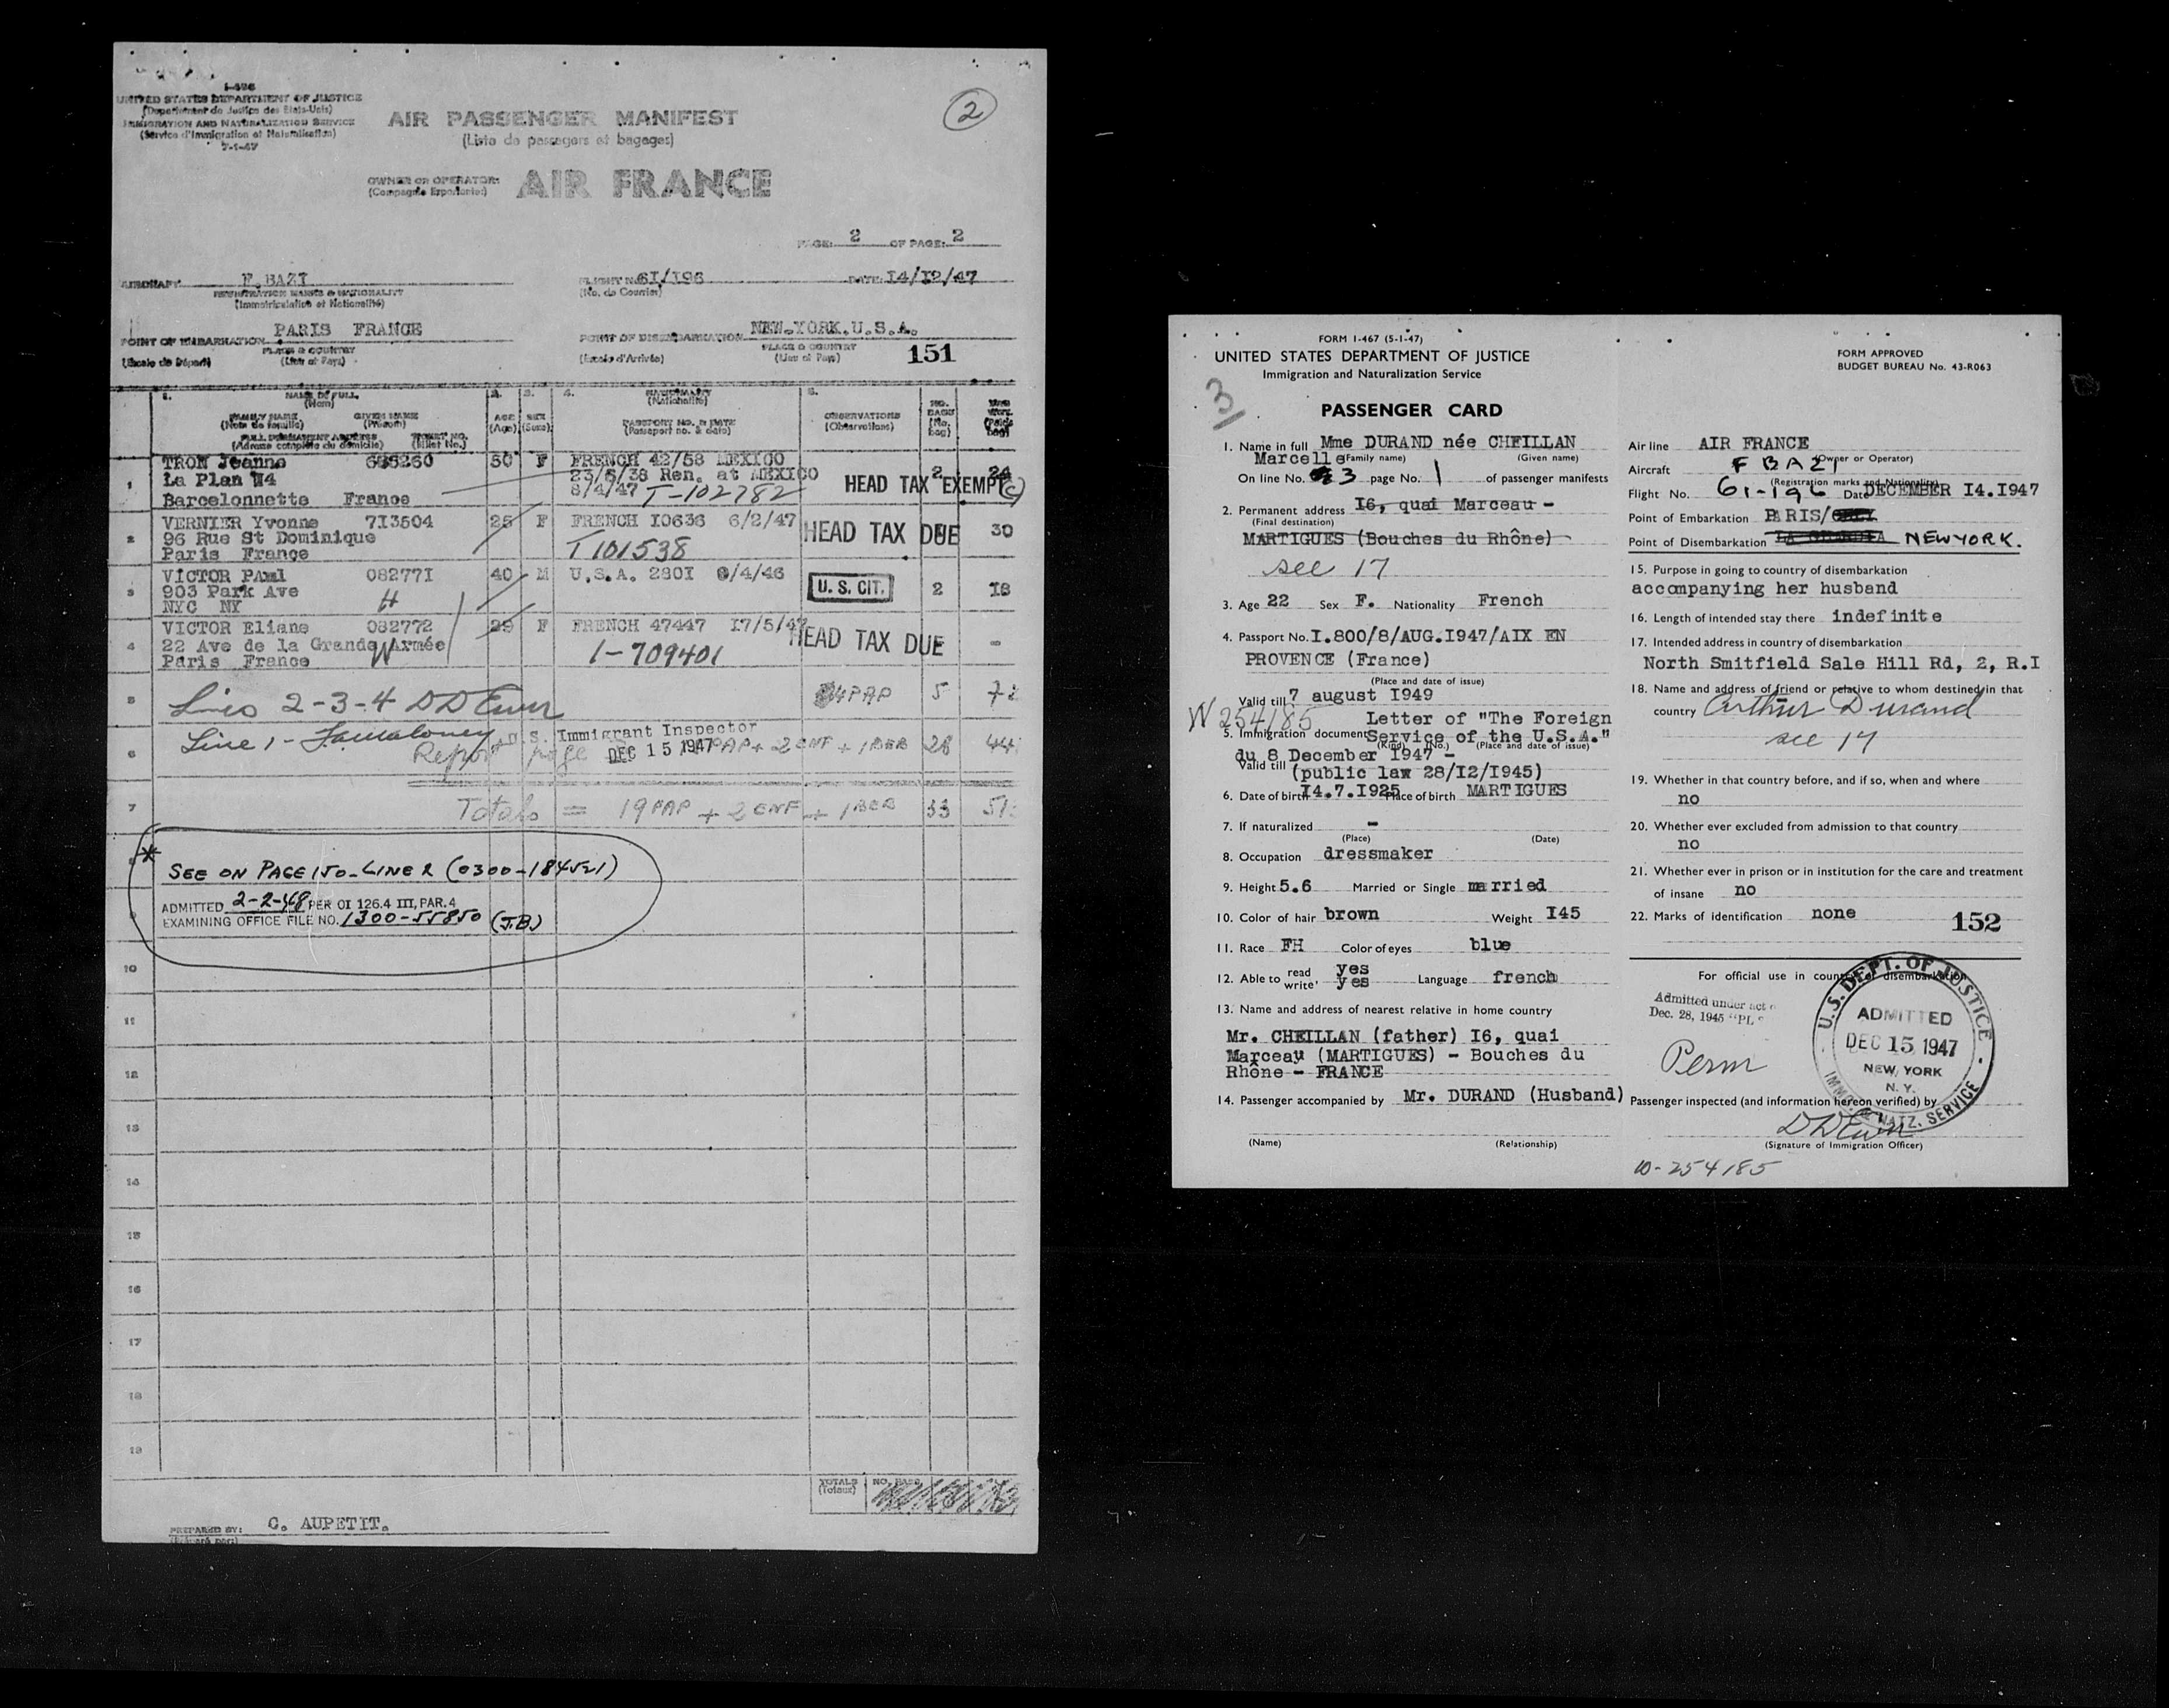 I-466
UNITED STATES DEPARTMENT OF JUSTICE
(Département de Justice des Etats-Unis)
IMMIGRATION AND NATURALIZATION SERVICE
(Service d'Immigration et Naturalisation)
7-1-47
AIR PASSENGER MANIFEST
(Liste de passagers et bagages)
2
OWNER OR OPERATOR: AIR FRANCE
PAGE: 2 OF PAGE: 2
AIRCRAFT F.BAZI FLIGHT No. 6I/I96 DATE: I4/I2/47
REGISTRATION MARKS & NATIONALITY (No. de Courrier)
(Immatriculation et Nationalité)
POINT OF EMBARKATION PARIS FRANCE POINT OF DISEMBARKATION NEW-YORK.U.S.A.
(Escale de Départ) PLACE & COUNTRY (Escale d'Arrivée) PLACE & COUNTRY
(Lieu et Pays) (Lieu et Pays) 151
1. NAME IN FULL (Nom) 2. 3. 4. NATIONALITY (Nationalité) 5.
FAMILY NAME (Nom de famille) GIVEN NAME (Prénom) AGE (Age) SEX (Sexe) PASSPORT NO. & DATE (Passeport no. & date) OBSERVATIONS (Observations) NO. BAGS (No. bag)
FULL PERMANENT ADDRESS (Adresse complète du domicile) TICKET NO. (Billet No.)
1 TRON Jeanne 685260 50 F FRENCH 42/58 MEXICO
La Plan W4 23/6/38 Ren. at MEXICO HEAD TAX EXEMPT (c) 2 24
Barcelonnette France 8/4/47 T-102782
2 VERNIER Yvonne 7I3504 25 F FRENCH I0636 6/2/47 HEAD TAX DUE 30
96 Rue St Dominique T101538
Paris France
3 VICTOR Paul 08277I 40 M U.S.A. 280I 8/4/46 U. S. CIT. 2 I8
903 Park Ave H
NYC NY
4 VICTOR Eliane 082772 29 F FRENCH 47447 I7/5/47 HEAD TAX DUE -
22 Ave de la Grande Armée W 1-709401
Paris France
5 Lines 2-3-4 DDEwen 4 PAP 5 72
Line 1 - U.S. Immigrant Inspector
6 Report page DEC 15 1947 PAP + 2 ENF + 1 BEB 28 44
7 Totals = 19 PAP + 2 ENF + 1 BEB 33 51
8 * SEE ON PAGE 150-LINE 2 (0300-184521)
9 ADMITTED 2-2-48 PER OI 126.4 III, PAR. 4
EXAMINING OFFICE FILE NO. 1300-55850 (J.B)
10
11
12
13
14
15
16
17
18
19
TOTALS (Totaux) NO. PASS.
PREPARED BY: C. AUPETIT.
FORM I-467 (5-1-47)
UNITED STATES DEPARTMENT OF JUSTICE
Immigration and Naturalization Service
FORM APPROVED
BUDGET BUREAU No. 43-R063
3
PASSENGER CARD
1. Name in full Mme DURAND née CHEILLAN
Marcelle (Family name) (Given name)
On line No. 3 page No. 1 of passenger manifests
2. Permanent address I6, quai Marceau -
(Final destination)
MARTIGUES (Bouches du Rhône) -
see 17
3. Age 22 Sex F. Nationality French
4. Passport No. I.800/8/AUG.I947/AIX EN
PROVENCE (France)
(Place and date of issue)
Valid till 7 august I949
W 254185 Letter of "The Foreign
5. Immigration document Service of the U.S.A."
(Kind) (No.) (Place and date of issue)
du 8 December I947 -
Valid till (public law 28/I2/I945)
6. Date of birth I4.7.I925 Place of birth MARTIGUES
7. If naturalized -
(Place) (Date)
8. Occupation dressmaker
9. Height 5.6 Married or Single married
10. Color of hair brown Weight I45
11. Race FH Color of eyes blue
12. Able to read yes write yes Language french
13. Name and address of nearest relative in home country
Mr. CHEILLAN (father) I6, quai
Marceau (MARTIGUES) - Bouches du
Rhône - FRANCE
14. Passenger accompanied by Mr. DURAND (Husband)
(Name) (Relationship)
Air line AIR FRANCE
(Owner or Operator)
Aircraft F BAZI
(Registration marks and Nationality)
Flight No. 61-196 Date DECEMBER I4.I947
Point of Embarkation PARIS/
Point of Disembarkation LA GUARDIA NEW YORK.
15. Purpose in going to country of disembarkation
accompanying her husband
16. Length of intended stay there indefinite
17. Intended address in country of disembarkation
North Smitfield Sale Hill Rd, 2, R.I
18. Name and address of friend or relative to whom destined in that
country Arthur Durand
see 17
19. Whether in that country before, and if so, when and where
no
20. Whether ever excluded from admission to that country
no
21. Whether ever in prison or in institution for the care and treatment
of insane no
22. Marks of identification none
152
For official use in country of disembarkation
Admitted under act
Dec. 28, 1945 "PL
Perm
U.S. DEPT. OF JUSTICE
ADMITTED
DEC 15 1947
NEW YORK
N. Y.
IMM. & NATZ. SERVICE
Passenger inspected (and information hereon verified) by
DDEwen
(Signature of Immigration Officer)
W-254185